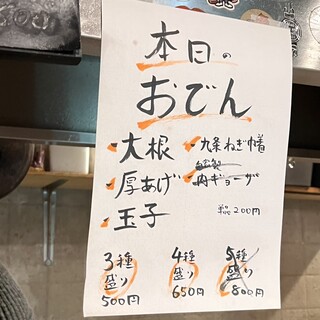 本日の
おでん
大根
九条ねぎ巾着
厚あげ
自家製
肉ギョーザ
玉子
単品200円
3種
盛り
500円
4種
盛り
650円
5種
盛り
800円